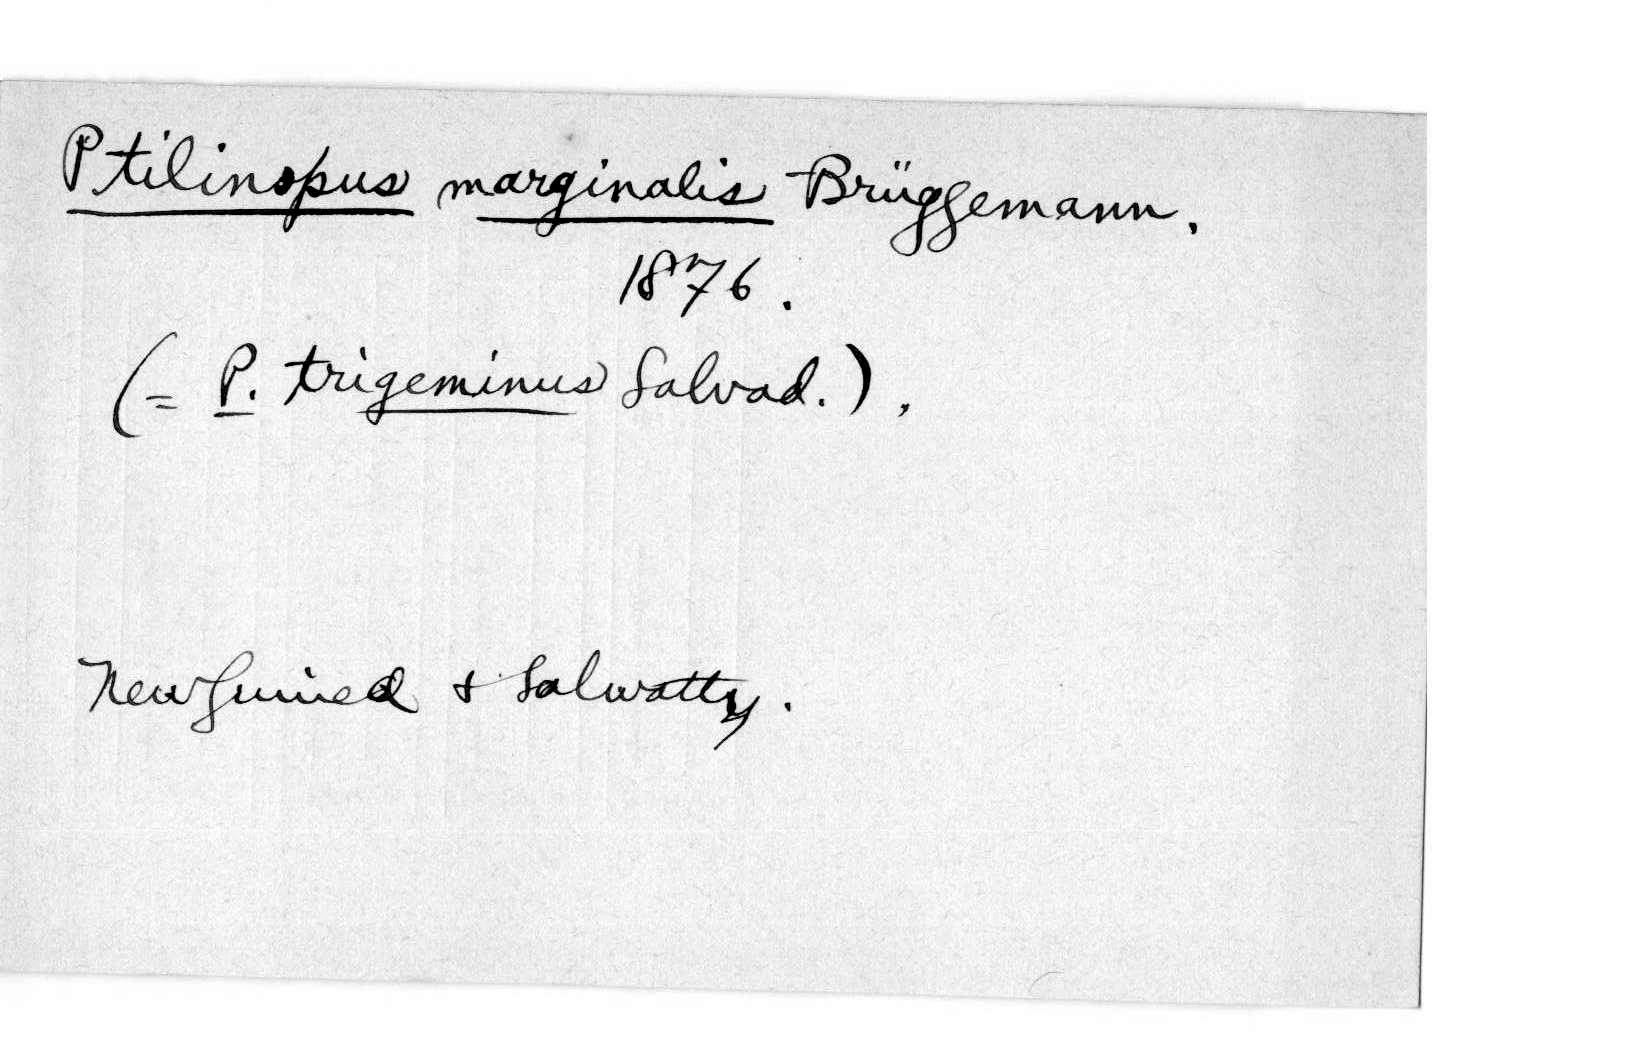 Ptilinopus marginalis Brüggemann.
1876.
(= P. trigeminus Salvad.).
New Guinea & Salwatty.